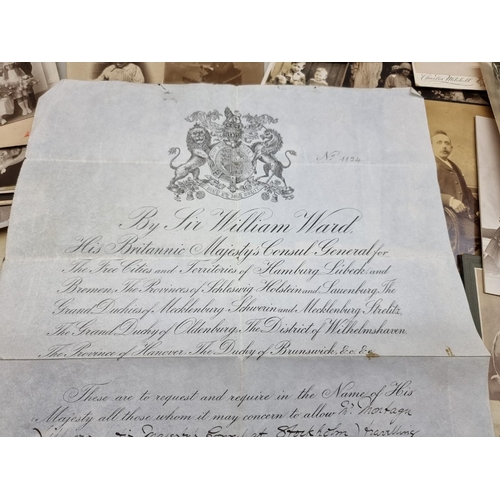 Charles Mitchell
Nº
By Sir William Ward.
His Britannic Majesty's Consul General for
The Free Cities and Territories of Hamburg, Lübeck and
Bremen, The Provinces of Schleswig Holstein and Lauenburg, The
Grand Duchies of Mecklenburg Schwerin and Mecklenburg Strelitz,
The Grand Duchy of Oldenburg, The District of Wilhelmshaven,
The Province of Hanover, The Duchy of Brunswick, &c. &c.
These are to request and require in the Name of His
Majesty all those whom it may concern to allow Mr Montagu
at Stockholm) travelling